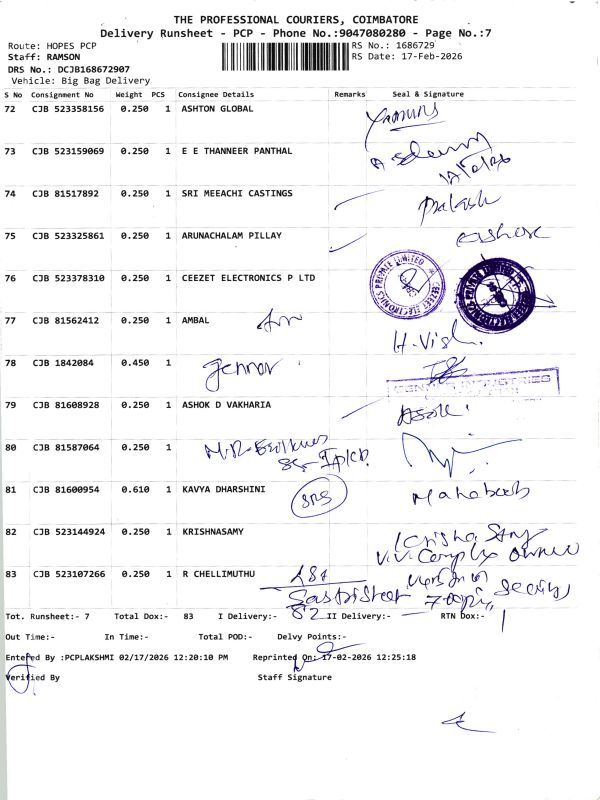 THE PROFESSIONAL COURIERS, COIMBATORE
Delivery Runsheet - PCP - Phone No.:9047080280 - Page No.:7
Route: HOPES PCP RS No.: 1686729
Staff: RAMSON RS Date: 17-Feb-2026
DRS No.: DCJB168672907
Vehicle: Big Bag Delivery
S No Consignment No Weight PCS Consignee Details Remarks Seal & Signature
72 CJB 523358156 0.250 1 ASHTON GLOBAL
73 CJB 523159069 0.250 1 E E THANNEER PANTHAL
74 CJB 81517892 0.250 1 SRI MEEACHI CASTINGS Prakash
75 CJB 523325861 0.250 1 ARUNACHALAM PILLAY
76 CJB 523378310 0.250 1 CEEZET ELECTRONICS P LTD
77 CJB 81562412 0.250 1 AMBAL
78 CJB 1842084 0.450 1
79 CJB 81608928 0.250 1 ASHOK D VAKHARIA
80 CJB 81587064 0.250 1
81 CJB 81600954 0.610 1 KAVYA DHARSHINI SRS
82 CJB 523144924 0.250 1 KRISHNASAMY
V.V. Complex owner
83 CJB 523107266 0.250 1 R CHELLIMUTHU
Tot. Runsheet:- 7 Total Dox:- 83 I Delivery:- 82 II Delivery:- RTN Dox:- 1
Out Time:- In Time:- Total POD:- Delvy Points:-
Entered By :PCPLAKSHMI 02/17/2026 12:20:10 PM Reprinted On: 17-02-2026 12:25:18
Verified By Staff Signature